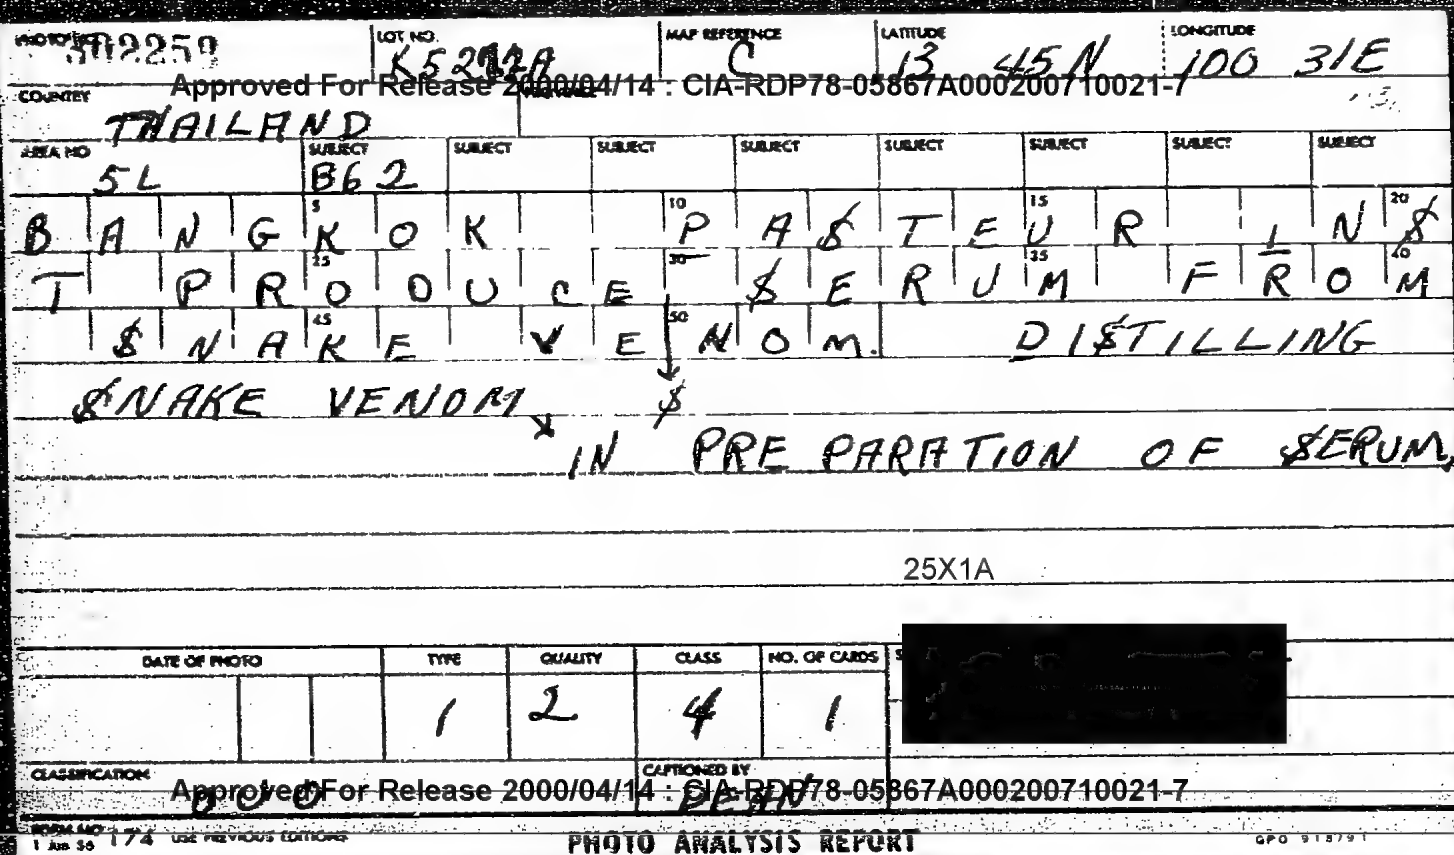 PHOTO NO. 302259 LOT NO. MAP REFERENCE C LATITUDE 13 45N LONGITUDE 100 31E
Approved For Release 2000/04/14 : CIA-RDP78-05867A000200710021-7
COUNTRY THAILAND
AREA NO 5L SUBJECT B62 SUBJECT SUBJECT SUBJECT SUBJECT SUBJECT SUBJECT SUBJECT
5 10 15 20
BANGKOK PA$TEUR IN$
25 30 35 40
T PRODUCE $ERUM FROM
45 50
$NAKE VENOM. DI$TILLING
$NAKE VENOM $
IN PREPARATION OF $ERUM.
25X1A
DATE OF PHOTO TYPE QUALITY CLASS NO. OF CARDS S
1 2 4 1
CLASSIFICATION CAPTIONED BY
Approved For Release 2000/04/14 : CIA-RDP78-05867A000200710021-7
OUO DEAN
FORM NO. 174 USE PREVIOUS EDITIONS PHOTO ANALYSIS REPORT GPO 918791
1 JUN 56